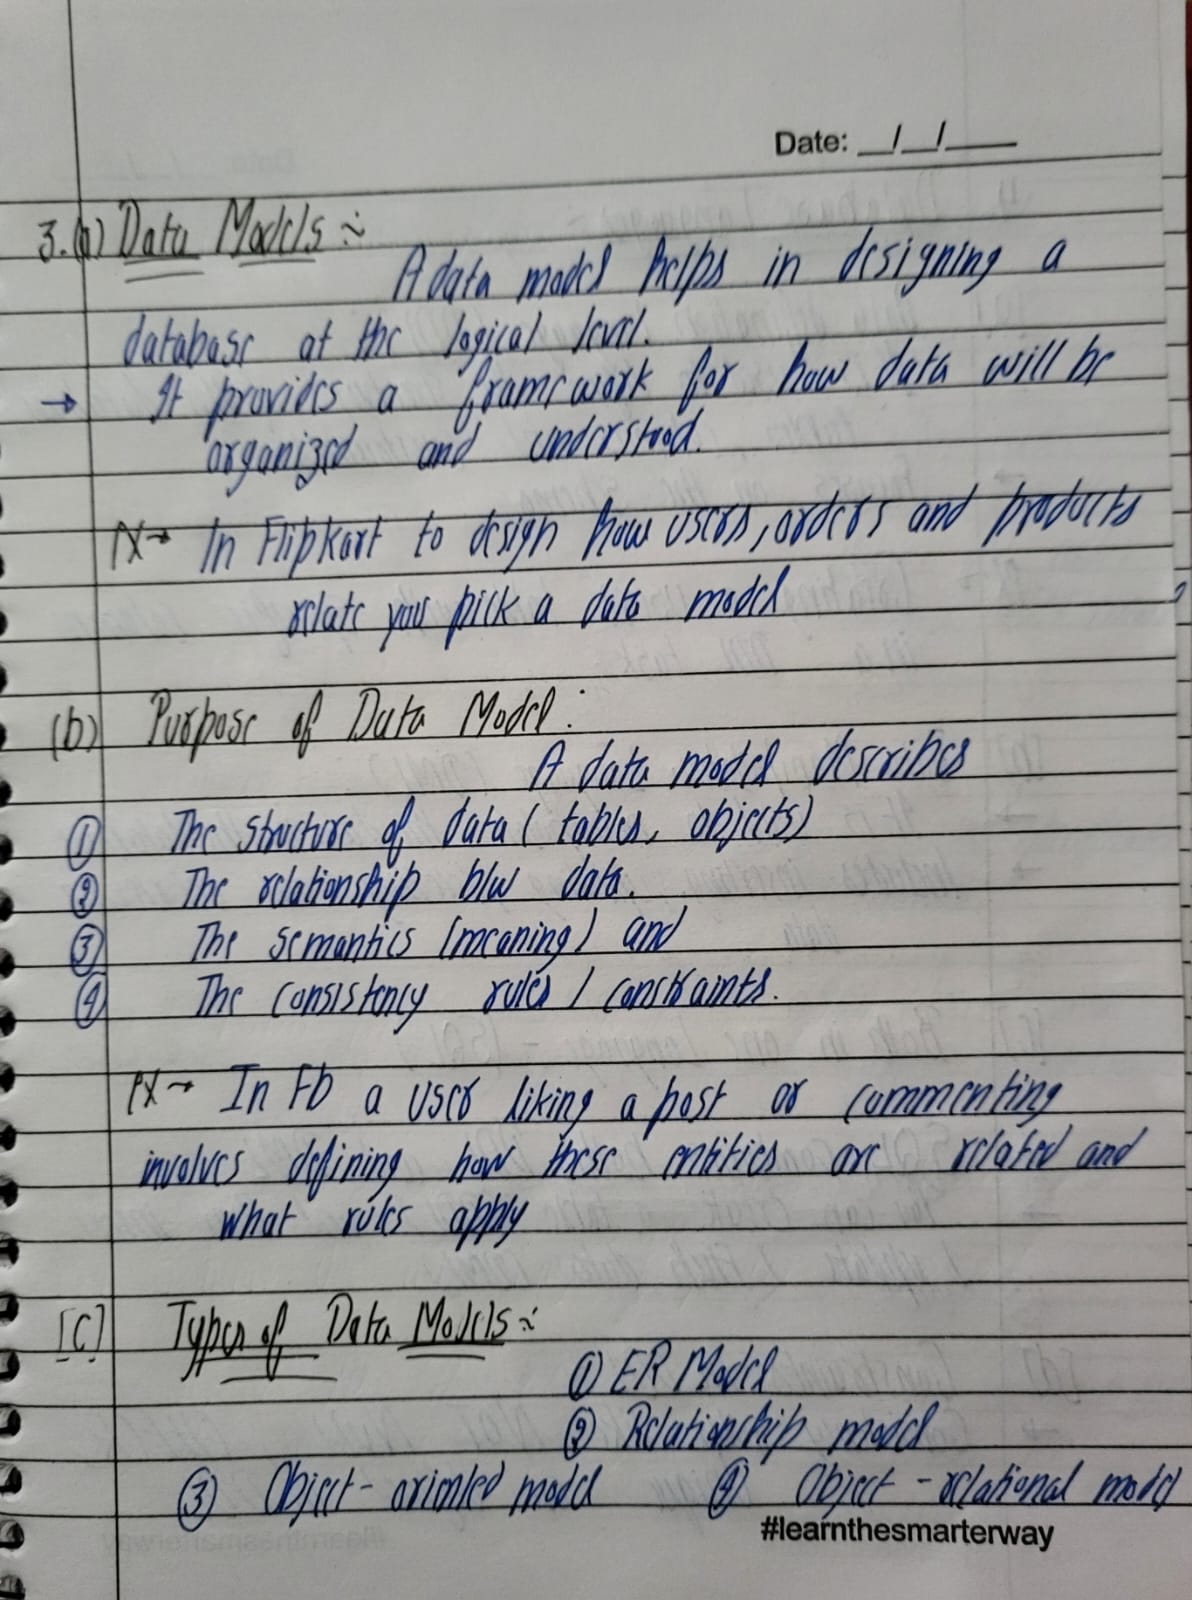 Date: __/__/____
3.(a) Data Models :-
A data model helps in designing a
database at the logical level.
→ It provides a framework for how data will be
organized and understood.
EX→ In Flipkart to design how users, orders and products
relate you pick a data model
(b) Purpose of Data Model :
A data model describes
① The structure of data ( tables, objects)
② The relationship b/w data.
③ The semantics (meaning) and
④ The consistency rules / constraints.
EX→ In Fb a user liking a post or commenting
involves defining how these entities are related and
what rules apply
[C] Types of Data Models :-
① ER Model
② Relationship model
③ Object - oriented model ④ Object - relational model
#learnthesmarterway